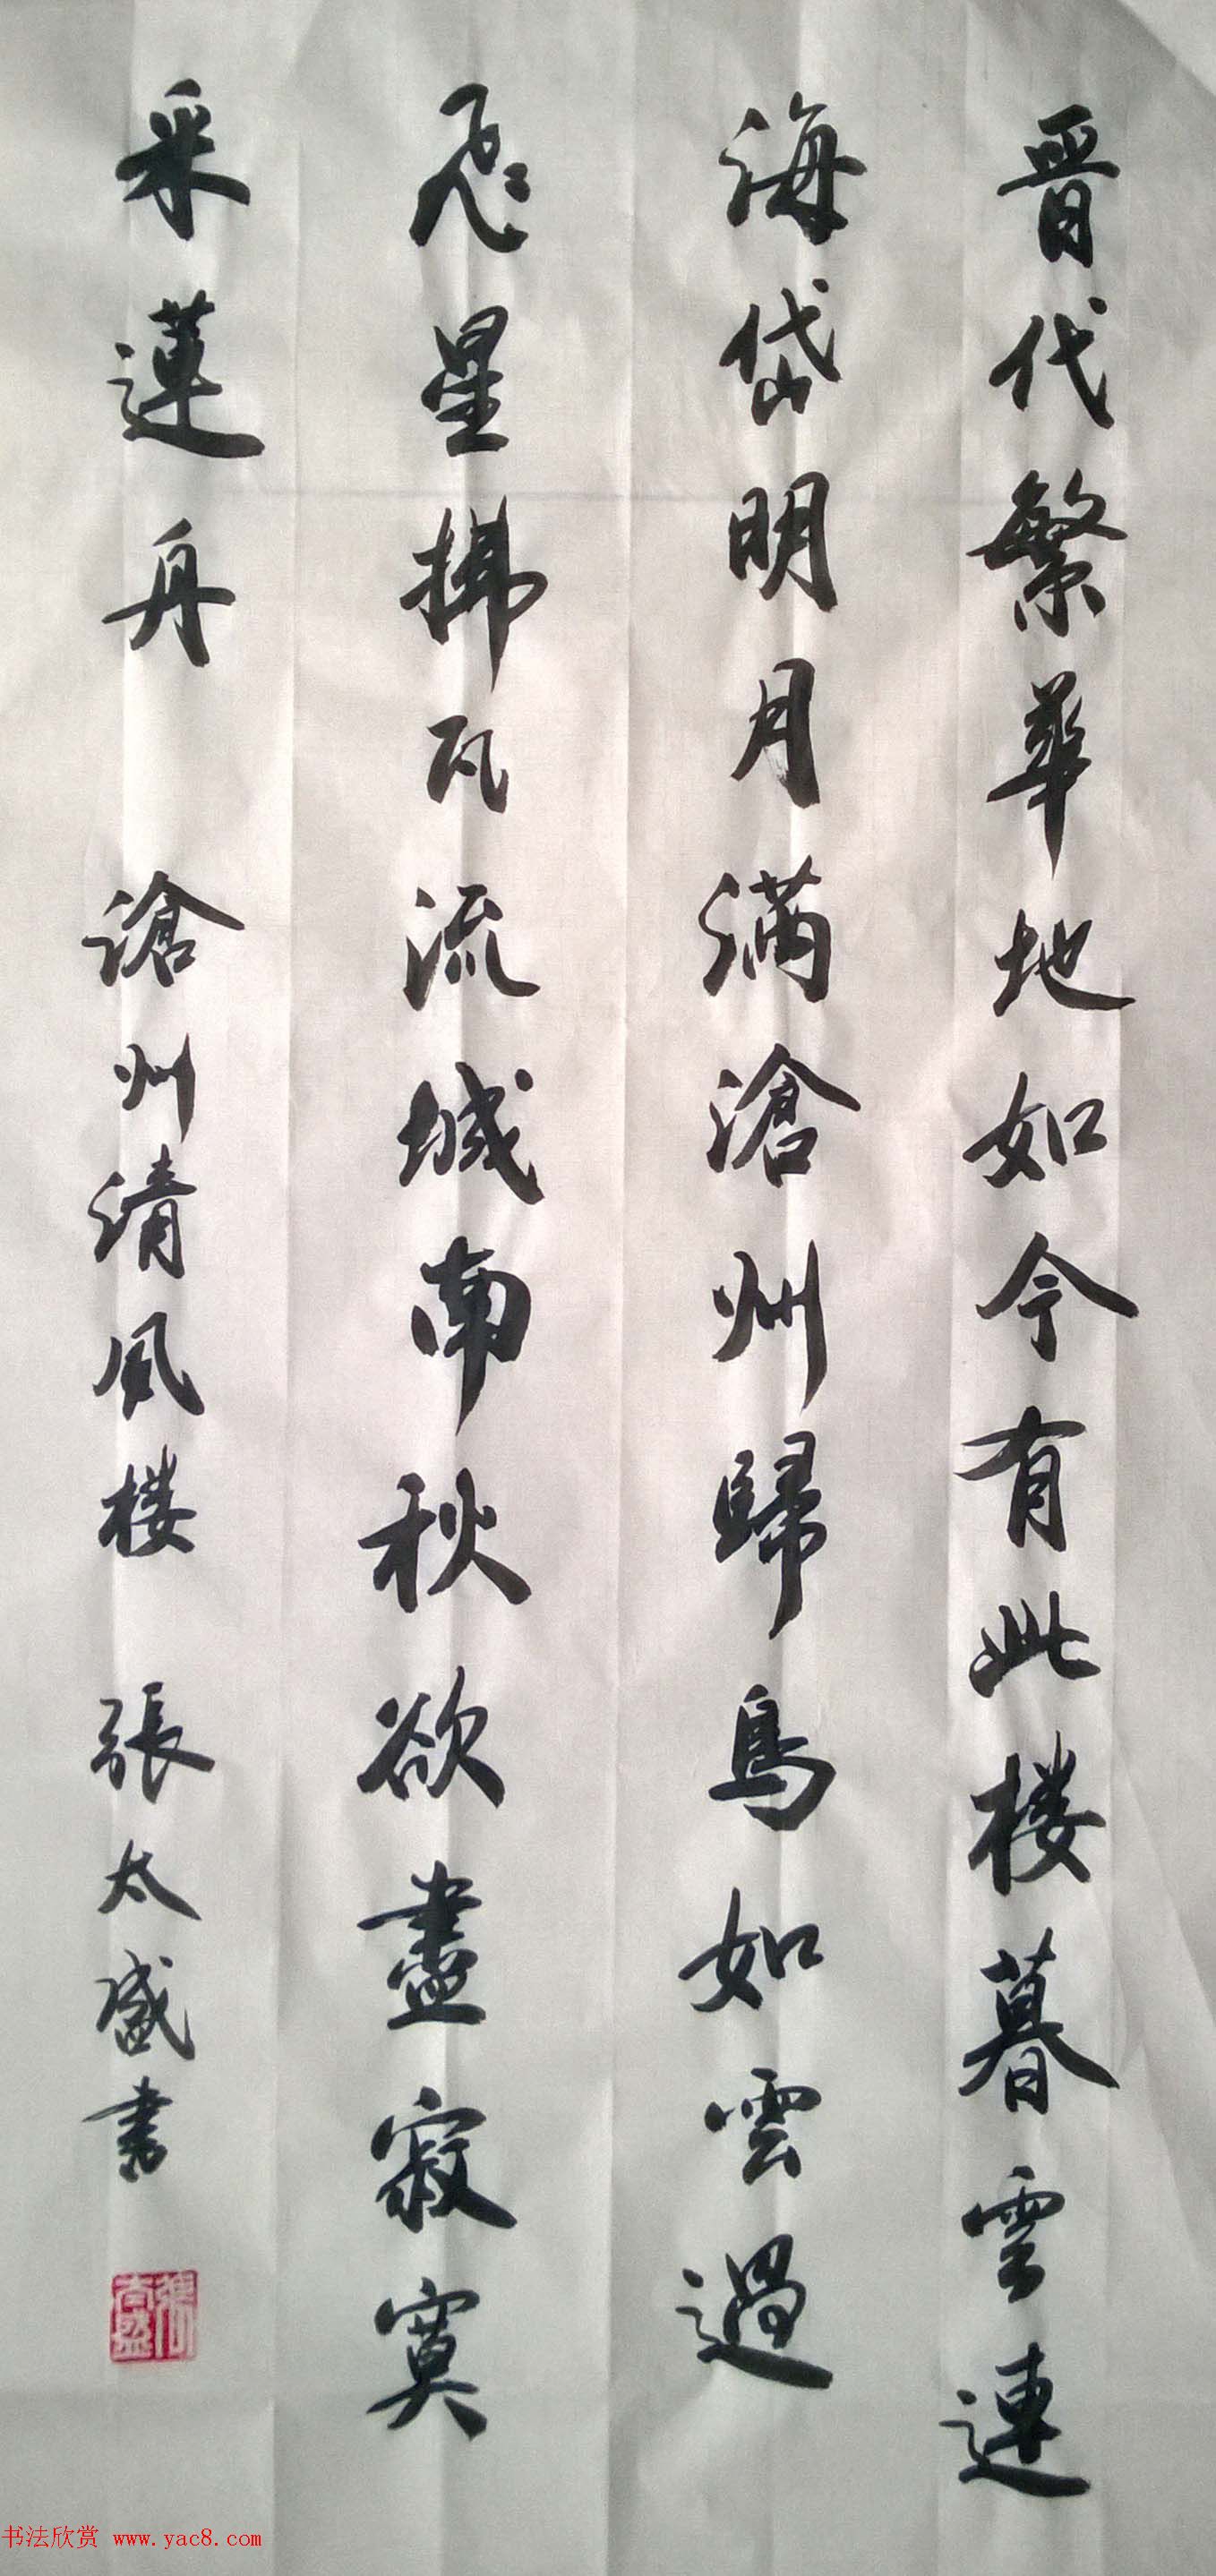 晋代繁華地如今有此楼暮雲連
海岱明月满滄州歸鳥如雲過
飛星拂瓦流城南秋欲盡寂寞
采蓮舟 滄州清風楼 張太盛書
張太盛
书法欣赏 www.yac8.com